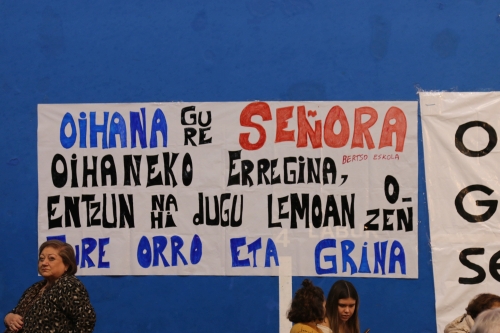 OIHANA GURE SEÑORA
BERTSO ESKOLA
OIHANEKO ERREGINA,
ENTZUN NAHI DUGU LEMOAN OZEN
ZURE ORRO ETA GRINA
O
G
SE